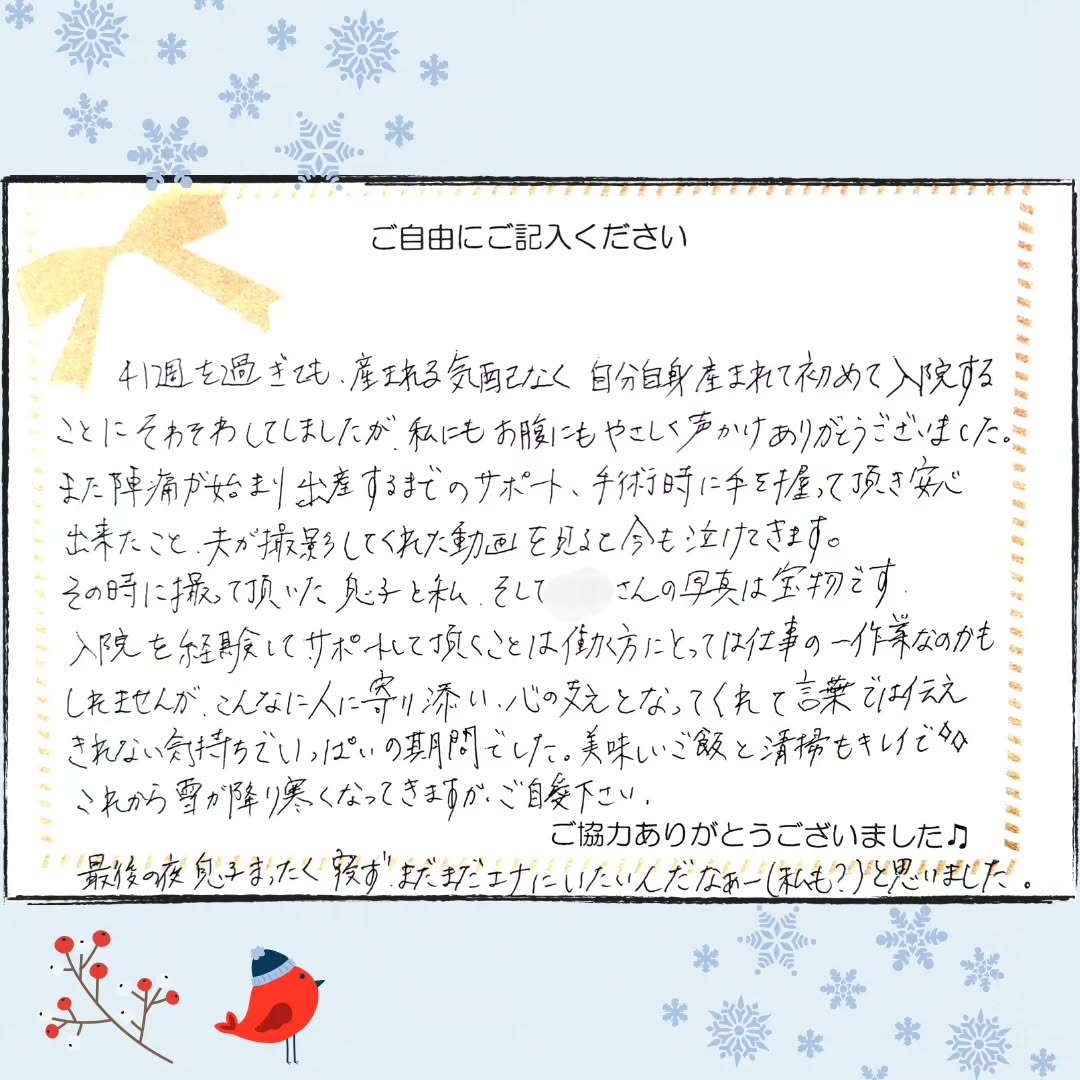 ご自由にご記入ください
41週を過ぎても、産まれる気配なく 自分自身産まれて初めて入院する
ことにそわそわしてしましたが、私にもお腹にもやさしく声かけありがとうございました。
また陣痛が始まり出産するまでのサポート、手術時に手を握って頂き安心
出来たこと、夫が撮影してくれた動画を見ると今も泣けてきます。
その時に撮って頂いた息子と私、そして さんの写真は宝物です。
入院を経験してサポートして頂くことは働く方にとっては仕事の一作業なのかも
しれませんが、こんなに人に寄り添い、心の支えとなってくれて言葉では伝え
きれない気持ちでいっぱいの期間でした。美味しいご飯と清掃もキレイで
これから雪が降り寒くなってきますが、ご自愛下さい。
ご協力ありがとうございました♫
最後の夜息子まったく寝ず、まだまだエナにいたいんだなぁー(私も?)と思いました。